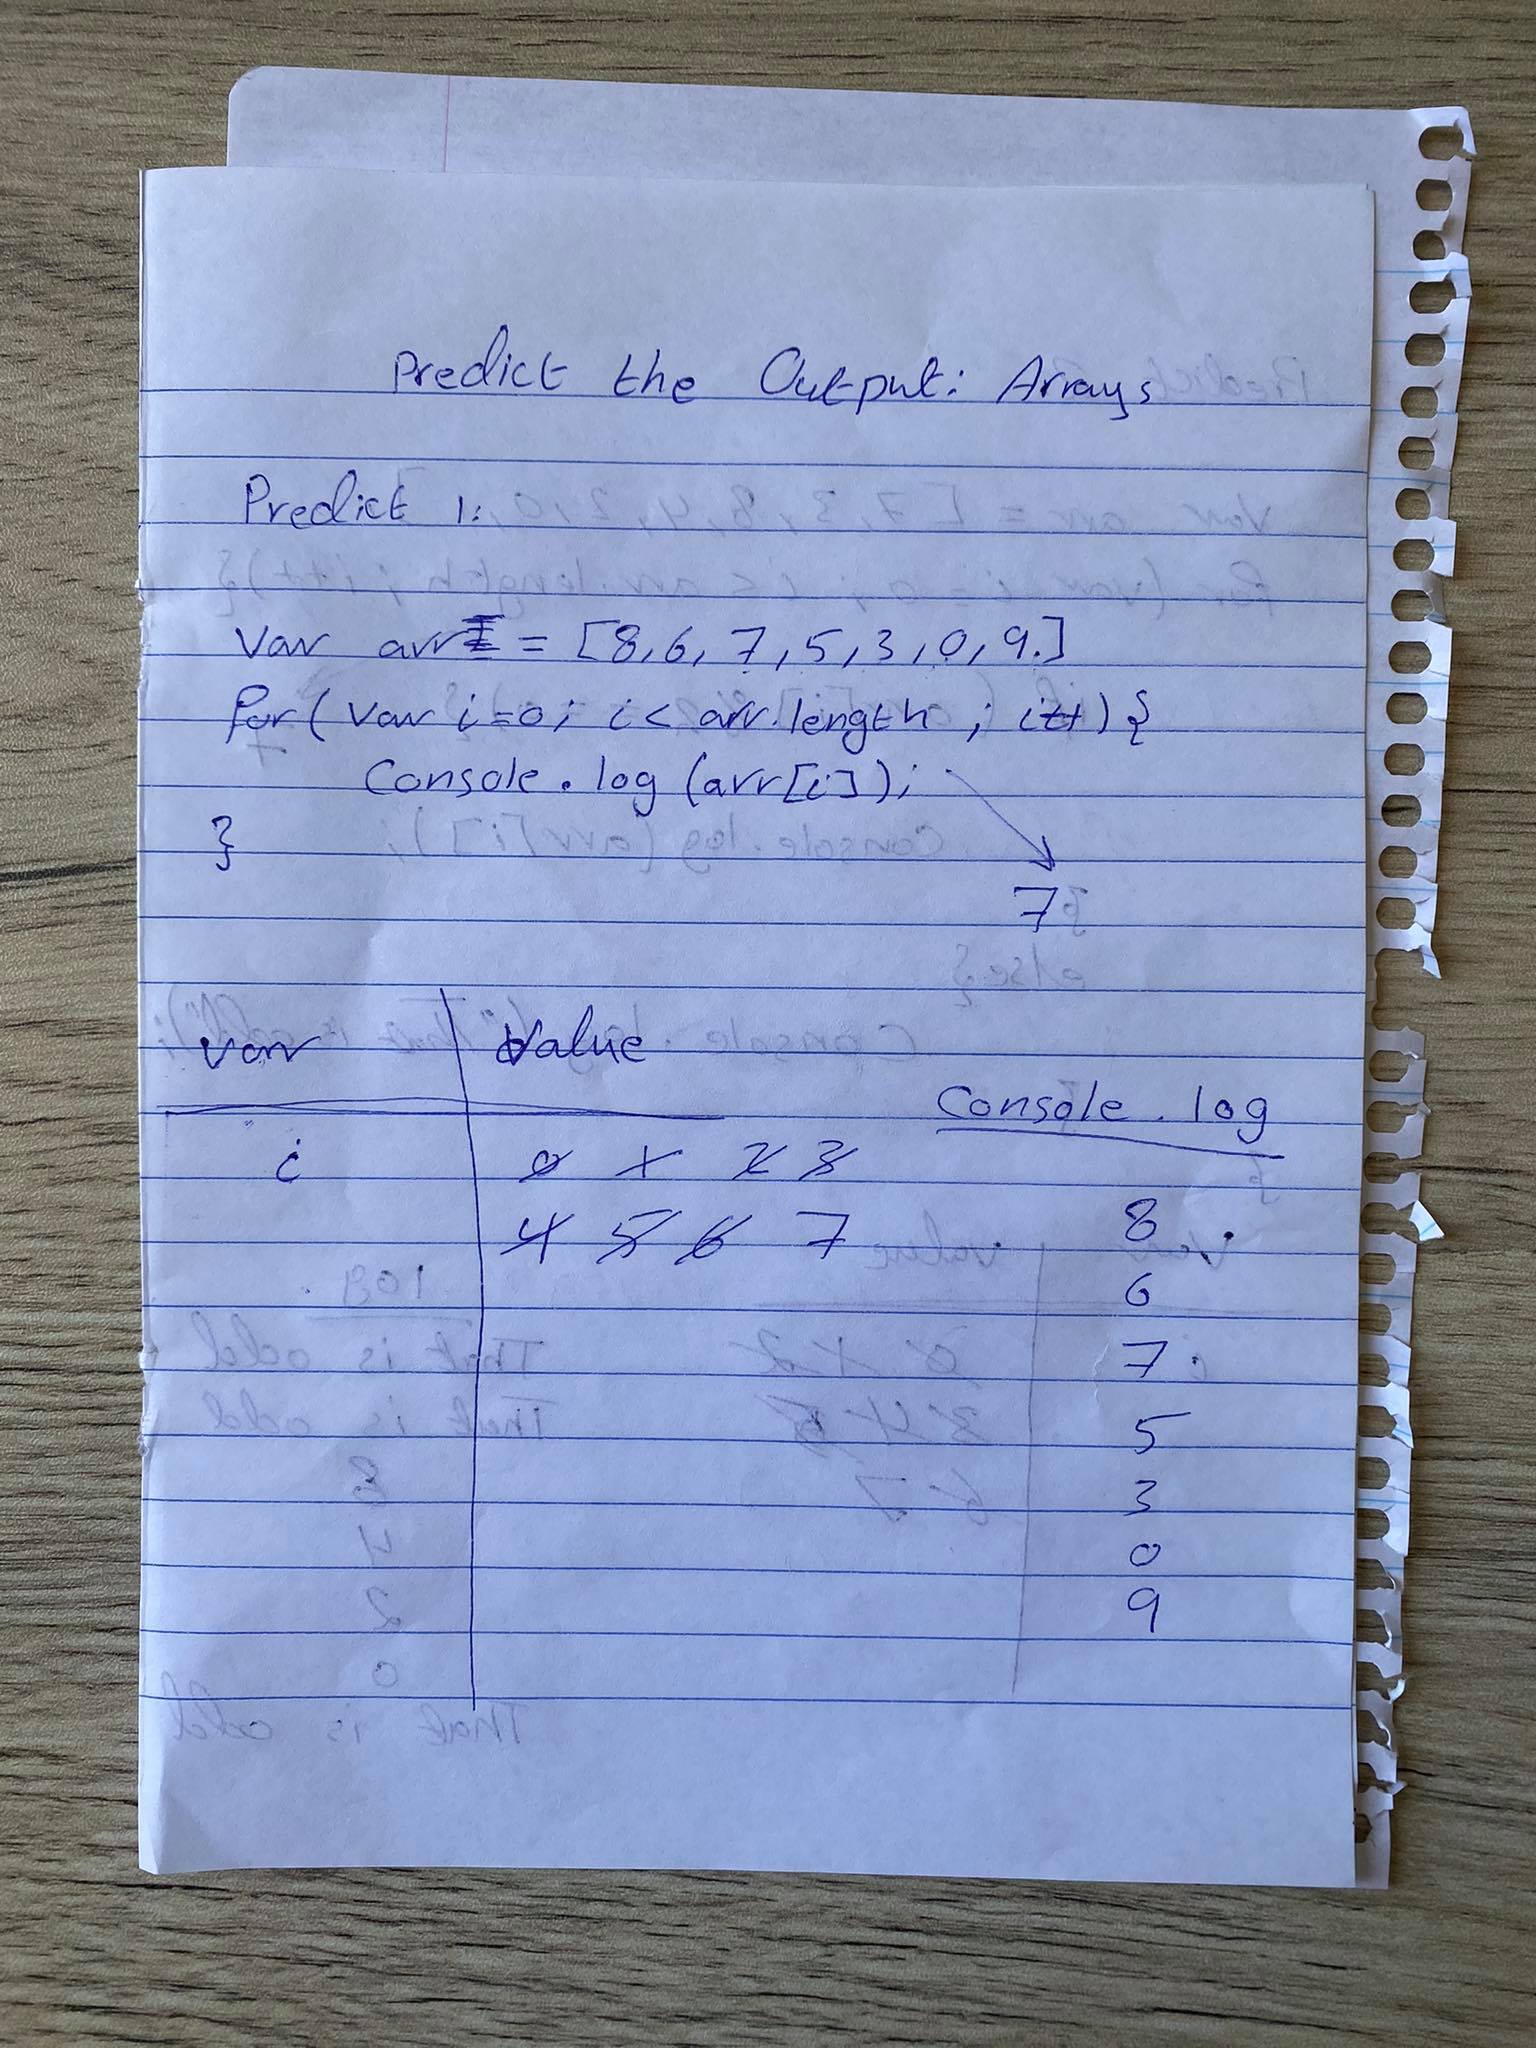 Predict the Output: Arrays
Predict 1:
var arr = [8,6,7,5,3,0,9.]
for(var i=0; i< arr.length; i++){
Console.log(arr[i]);
}
7
var Value
Console.log
i 0 1 2 3
4 5 6 7
8
6
7
5
3
0
9